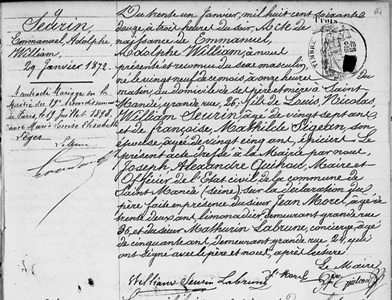 9
Seurin
Emmanuel, Adolphe,
William,
29 Janvier 1872.
Du trente un Janvier, mil huit cent soixante
douze, à trois heures du soir, Acte de
naissance de Emmanuel,
Adolphe William, à nous
présenté et reconnu du sexe masculin,
né le vingt neuf de ce mois à onze heures
du matin, au domicile de ses père et mère à Saint
Mandé, grande rue, 25, fils de Louis, Nicolas,
William Seurin, âgé de vingt sept ans
et de Françoise, Mathilde Sigelan, son
épouse, âgée de vingt cinq ans, épiciers. Le
présent acte dressé à la Mairie par nous
Joseph Alexandre Quihou, Maire et
Officier de l'État civil de la commune de
Saint Mandé (Seine) sur la déclaration du
père faite en présence du sieur Jean Morel, âgé de
trente deux ans, limonadier demeurant grande rue
36 et du sieur Mathurin Labrune, concierge, âgé
de cinquante ans, demeurant grande rue 24, qui
ont signé avec le père et nous, après lecture
Le Maire
William Seurin Labrune J. Morel Quihou
A contracté Mariage en la
Mairie du 12e Arrondissement
de Paris, le 19 Juillet 1898.
avec Marie Louise Elisabeth